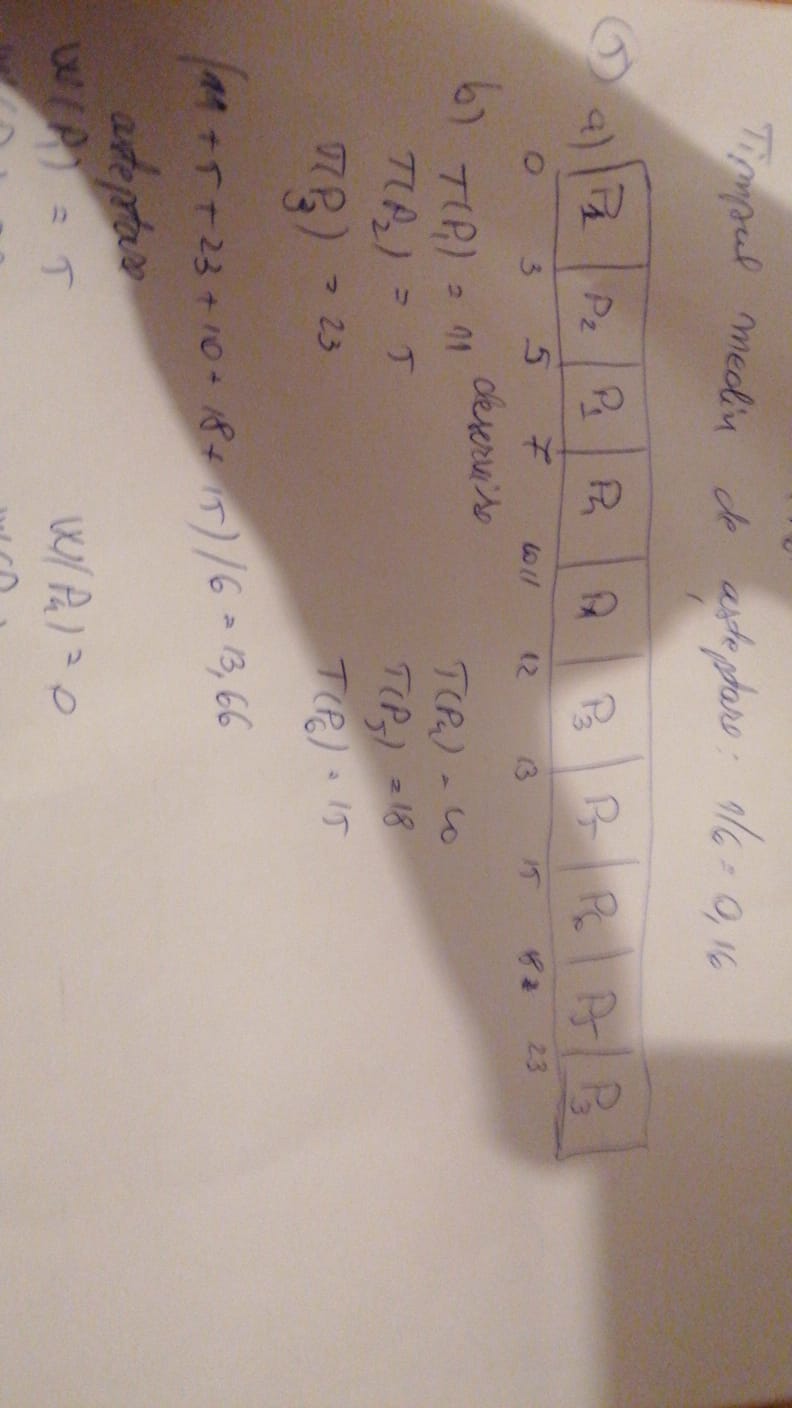 Timpul mediu de așteptare: 1/6 = 0,16
5 a) P1 P2 P1 P4 P1 P3 P5 P6 P5 P3
0 3 5 7 10 11 12 13 15 18 23
b) deservire
T(P1) = 11 T(P4) = 10
T(P2) = 5 T(P5) = 18
T(P3) = 23 T(P6) = 15
(11 + 5 + 23 + 10 + 18 + 15) / 6 = 13,66
asteptare
W(P1) = 5 W(P4) = 0